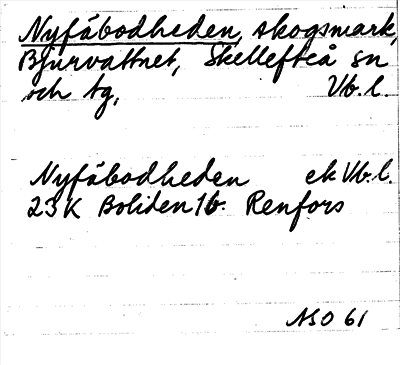 Nyfäbodheden, skogsmark,
Bjurvattnet, Skellefteå sn
och tg, Vb.l.
Nyfäbodheden ek Vb.l.
23K Boliden 1b. Renfors
NSO 61